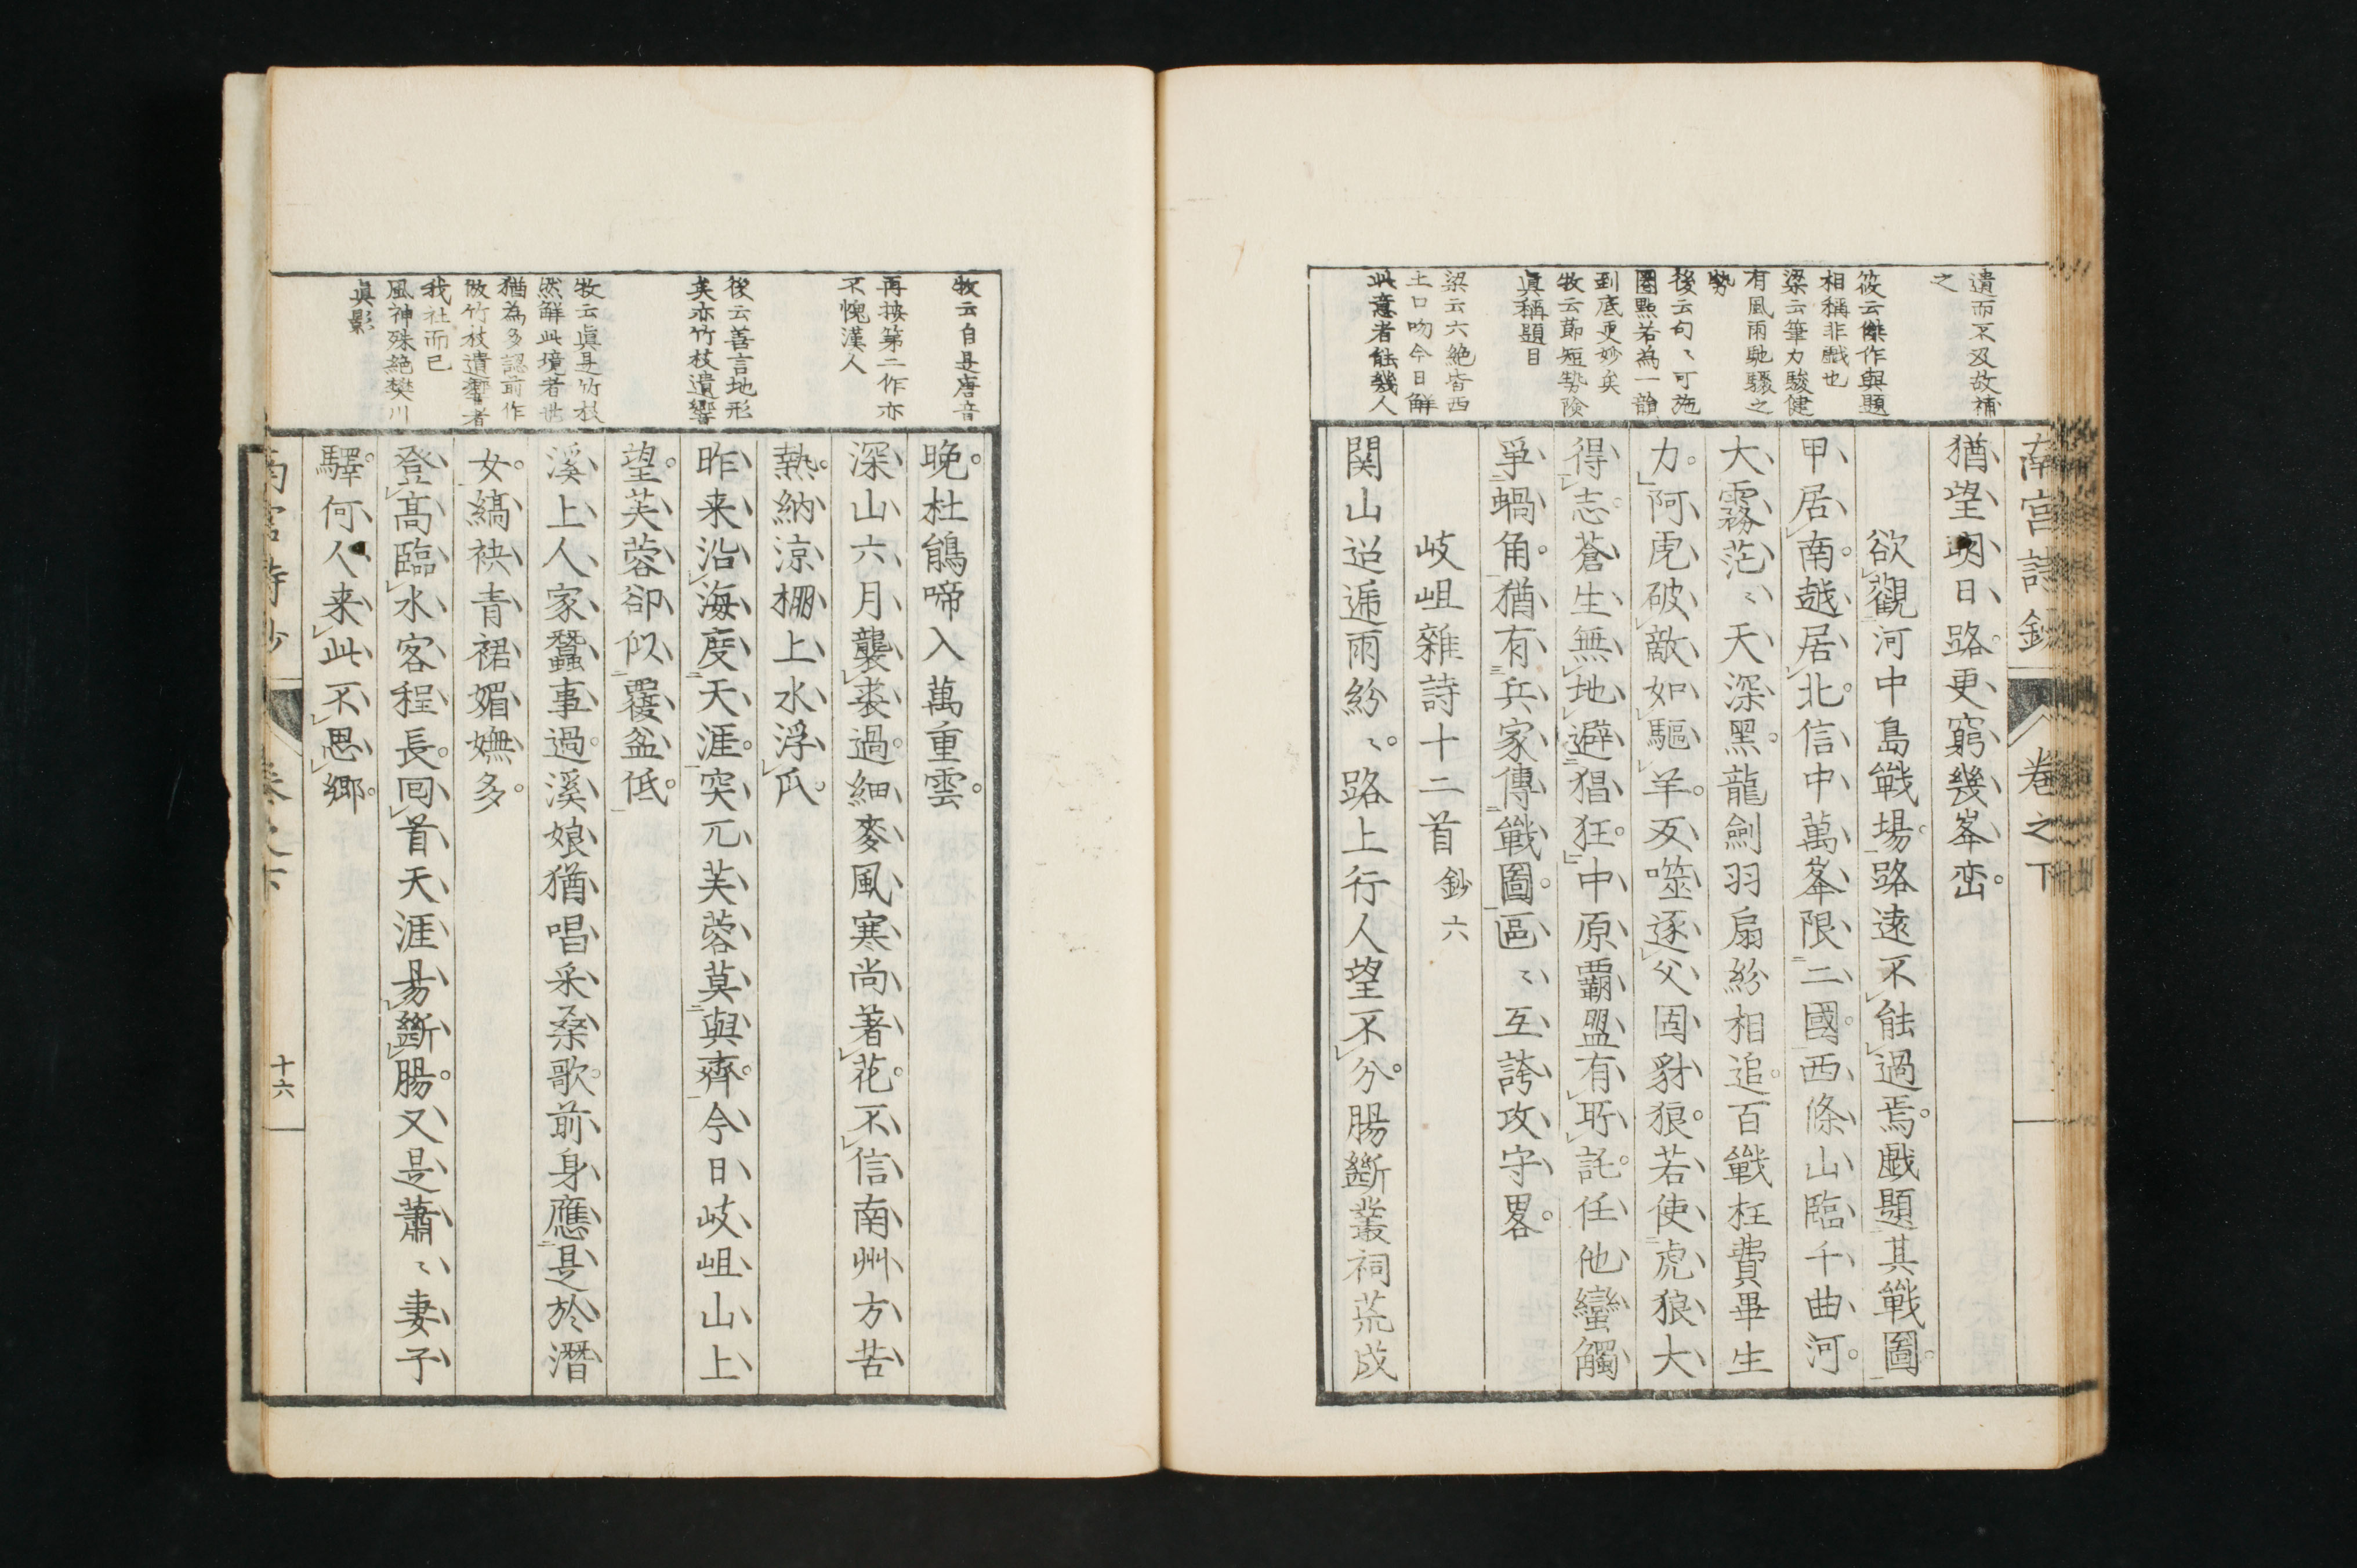 遺而不及故補
之
筱云傑作與題
相稱非戲也
梁云筆力駿健
有風雨馳驟之
勢
後云句〻可施
圏點若為一韻
到底更妙矣
牧云節短勢険
眞稱題目
梁云六絶皆西
土口吻今日鮮
此意者能幾人
南宮詩鈔
卷之下
猶望明日路更窮幾峯巒
欲觀河中島戰場路遠不能過焉戲題其戰圖
甲居南越居北信中萬峯限二國西條山臨千曲河
大霧茫〻天深黑龍劍羽扇紛相追百戰枉費畢生
力阿虎破敵如驅羊反噬逐父固豺狼若使虎狼大
得志蒼生無地避猖狂中原覇盟有所託任他蠻觸
爭蝸角猶有兵家傳戰圖區〻互誇攻守畧
岐岨雜詩十二首 鈔六
関山迢逓雨紛〻路上行人望不分腸斷叢祠荒戍
牧云自是唐音
再按第二作亦
不愧漢人
後云善言地形
矣亦竹枝遺響
牧云眞是竹枝
然解此境者世
猶為多認前作
做竹枝遺響者
我社而已
風神殊絶樊川
眞影
晩杜鵑啼入萬重雲
深山六月襲裘過細麥風寒尚著花不信南州方苦
熱納涼棚上水浮瓜
昨来沿海度天涯突兀芙蓉莫與齊今日岐岨山上
望芙蓉卻似覆盆低
溪上人家蠶事過溪娘猶唱采桑歌前身應是於潛
女縞袂青裙媚嫵多
登高臨水客程長回首天涯易斷腸又是蕭〻妻子
驛何人来此不思郷
南宮詩鈔
卷之下
十六